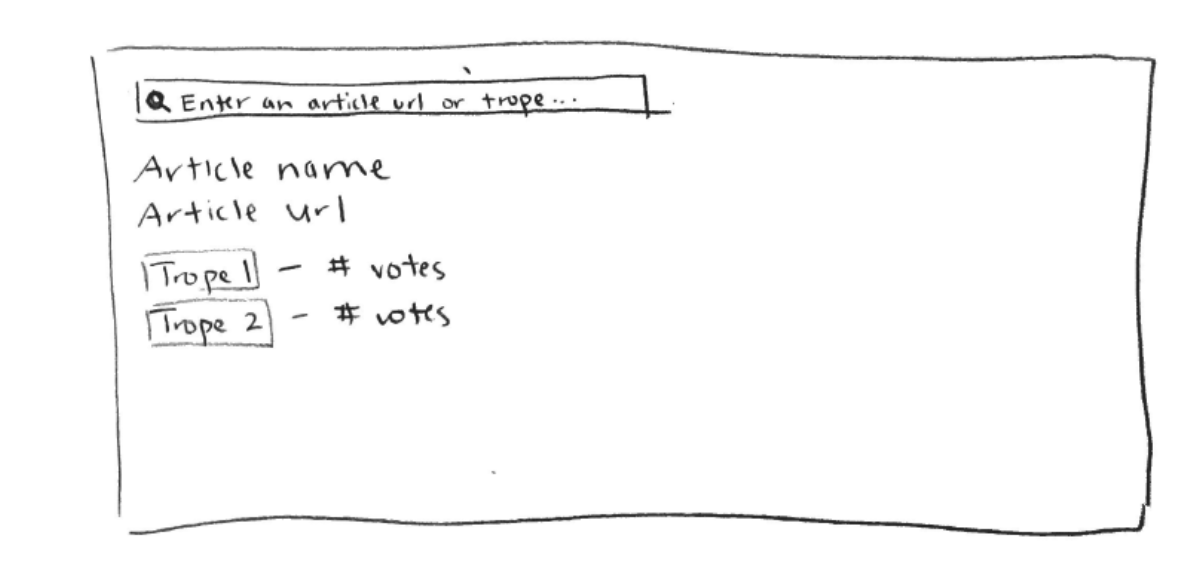 Enter an article url or trope...
Article name
Article url
Trope 1 - # votes
Trope 2 - # votes